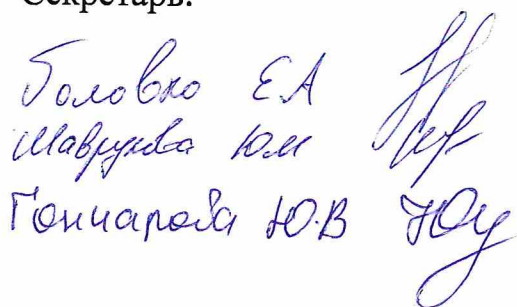 Секретарь:
Головко ЕА
Шаврукова ЮМ
Гончарова Ю.В